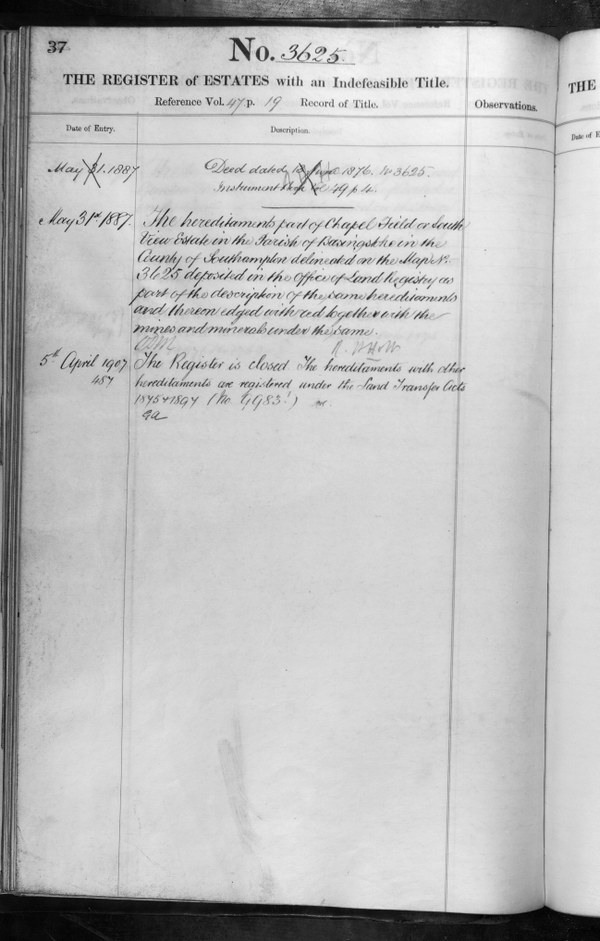 37
No. 3625.
THE REGISTER of ESTATES with an Indefeasible Title.
Reference Vol. 47 p. 19 Record of Title.
Observations.
Date of Entry.
Description.
May 31. 1887
Deed dated 1876. No 3625.
Instrument Vol 49 p 4.
May 31st 1887.
The hereditaments part of Chapel Field or South
View Estate in the Parish of Basingstoke in the
County of Southampton delineated on the Map No.
3625 deposited in the Office of Land Registry as
part of the description of the same hereditaments
and thereon edged with red together with the
mines and minerals under the same.
5th April 1907
487
The Register is closed. The hereditaments with other
hereditaments are registered under the Land Transfer Acts
1875 & 1897 (No.
THE
Date of E